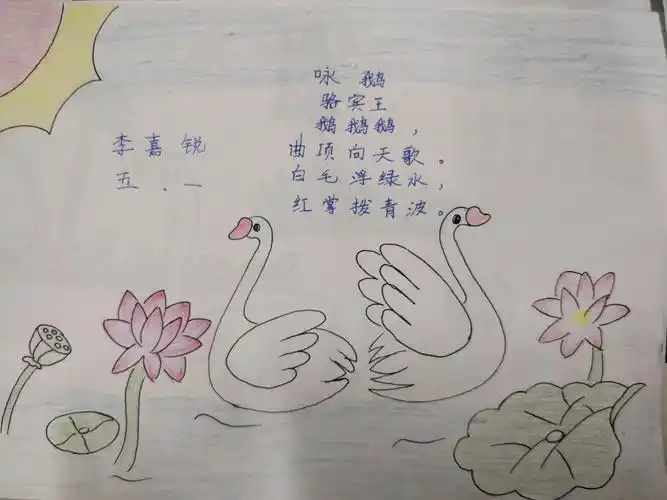 咏 鹅
骆宾王
鹅鹅鹅，
曲项向天歌。
白毛浮绿水，
红掌拨青波。
李嘉锐
五、一